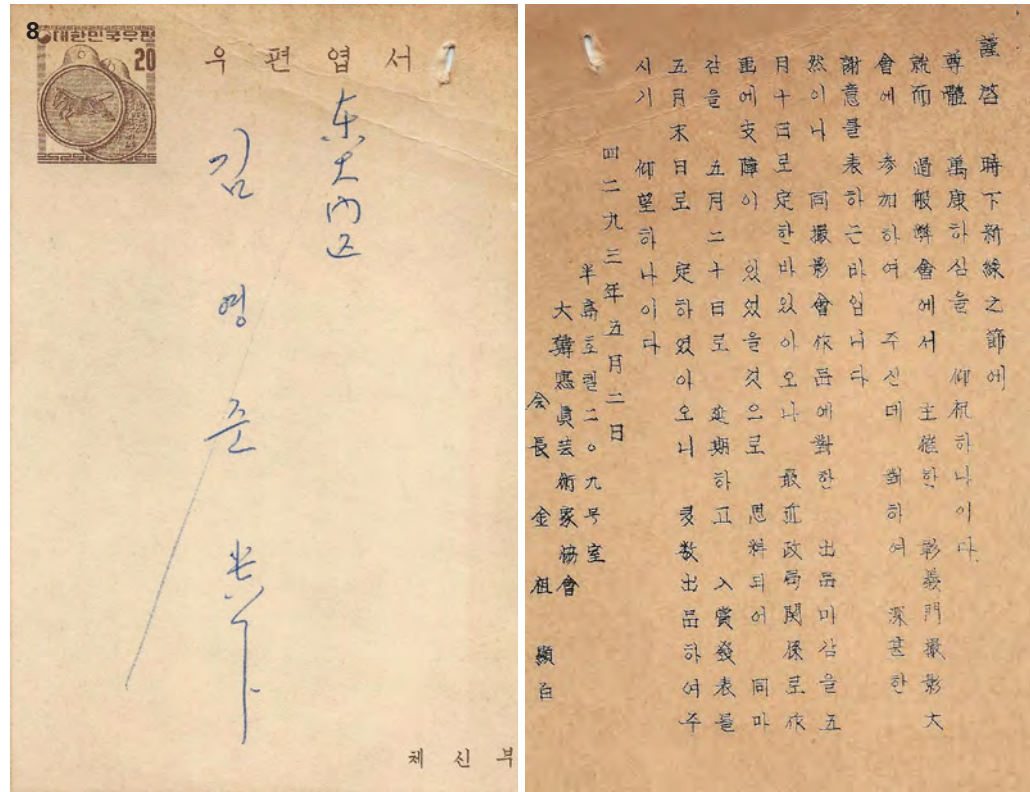 8
대한민국우편
20
우편엽서
东大门区
김영준 貴下
체신부
謹啓 時下新綠之節에
尊體 萬康하심을 仰祝하나이다
就而 過般弊會에서 主催한 彰義門撮影大
會에 參加하여 주신데 對하여 深甚한
謝意를 表하는바입니다
然이나 同撮影會作品에對한 出品마감을 五
月十日로 定한바있아오나 最近政局関係로 作
画에支障이 있었을것으로 思料되어 同마
감을 五月二十日로 延期하고 入賞發表를
五月末日로 定하였아오니 多数出品하여주
시기 仰望하나이다
四二九三年五月二日
半島호텔二○九号室
大韓寫眞芸術家協會
会長 金祖顯白